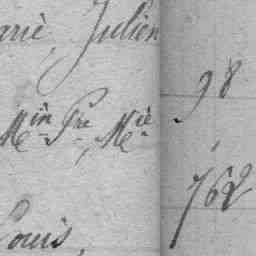 arie, Julien
98
Min Pre, Mie
762
Louis,